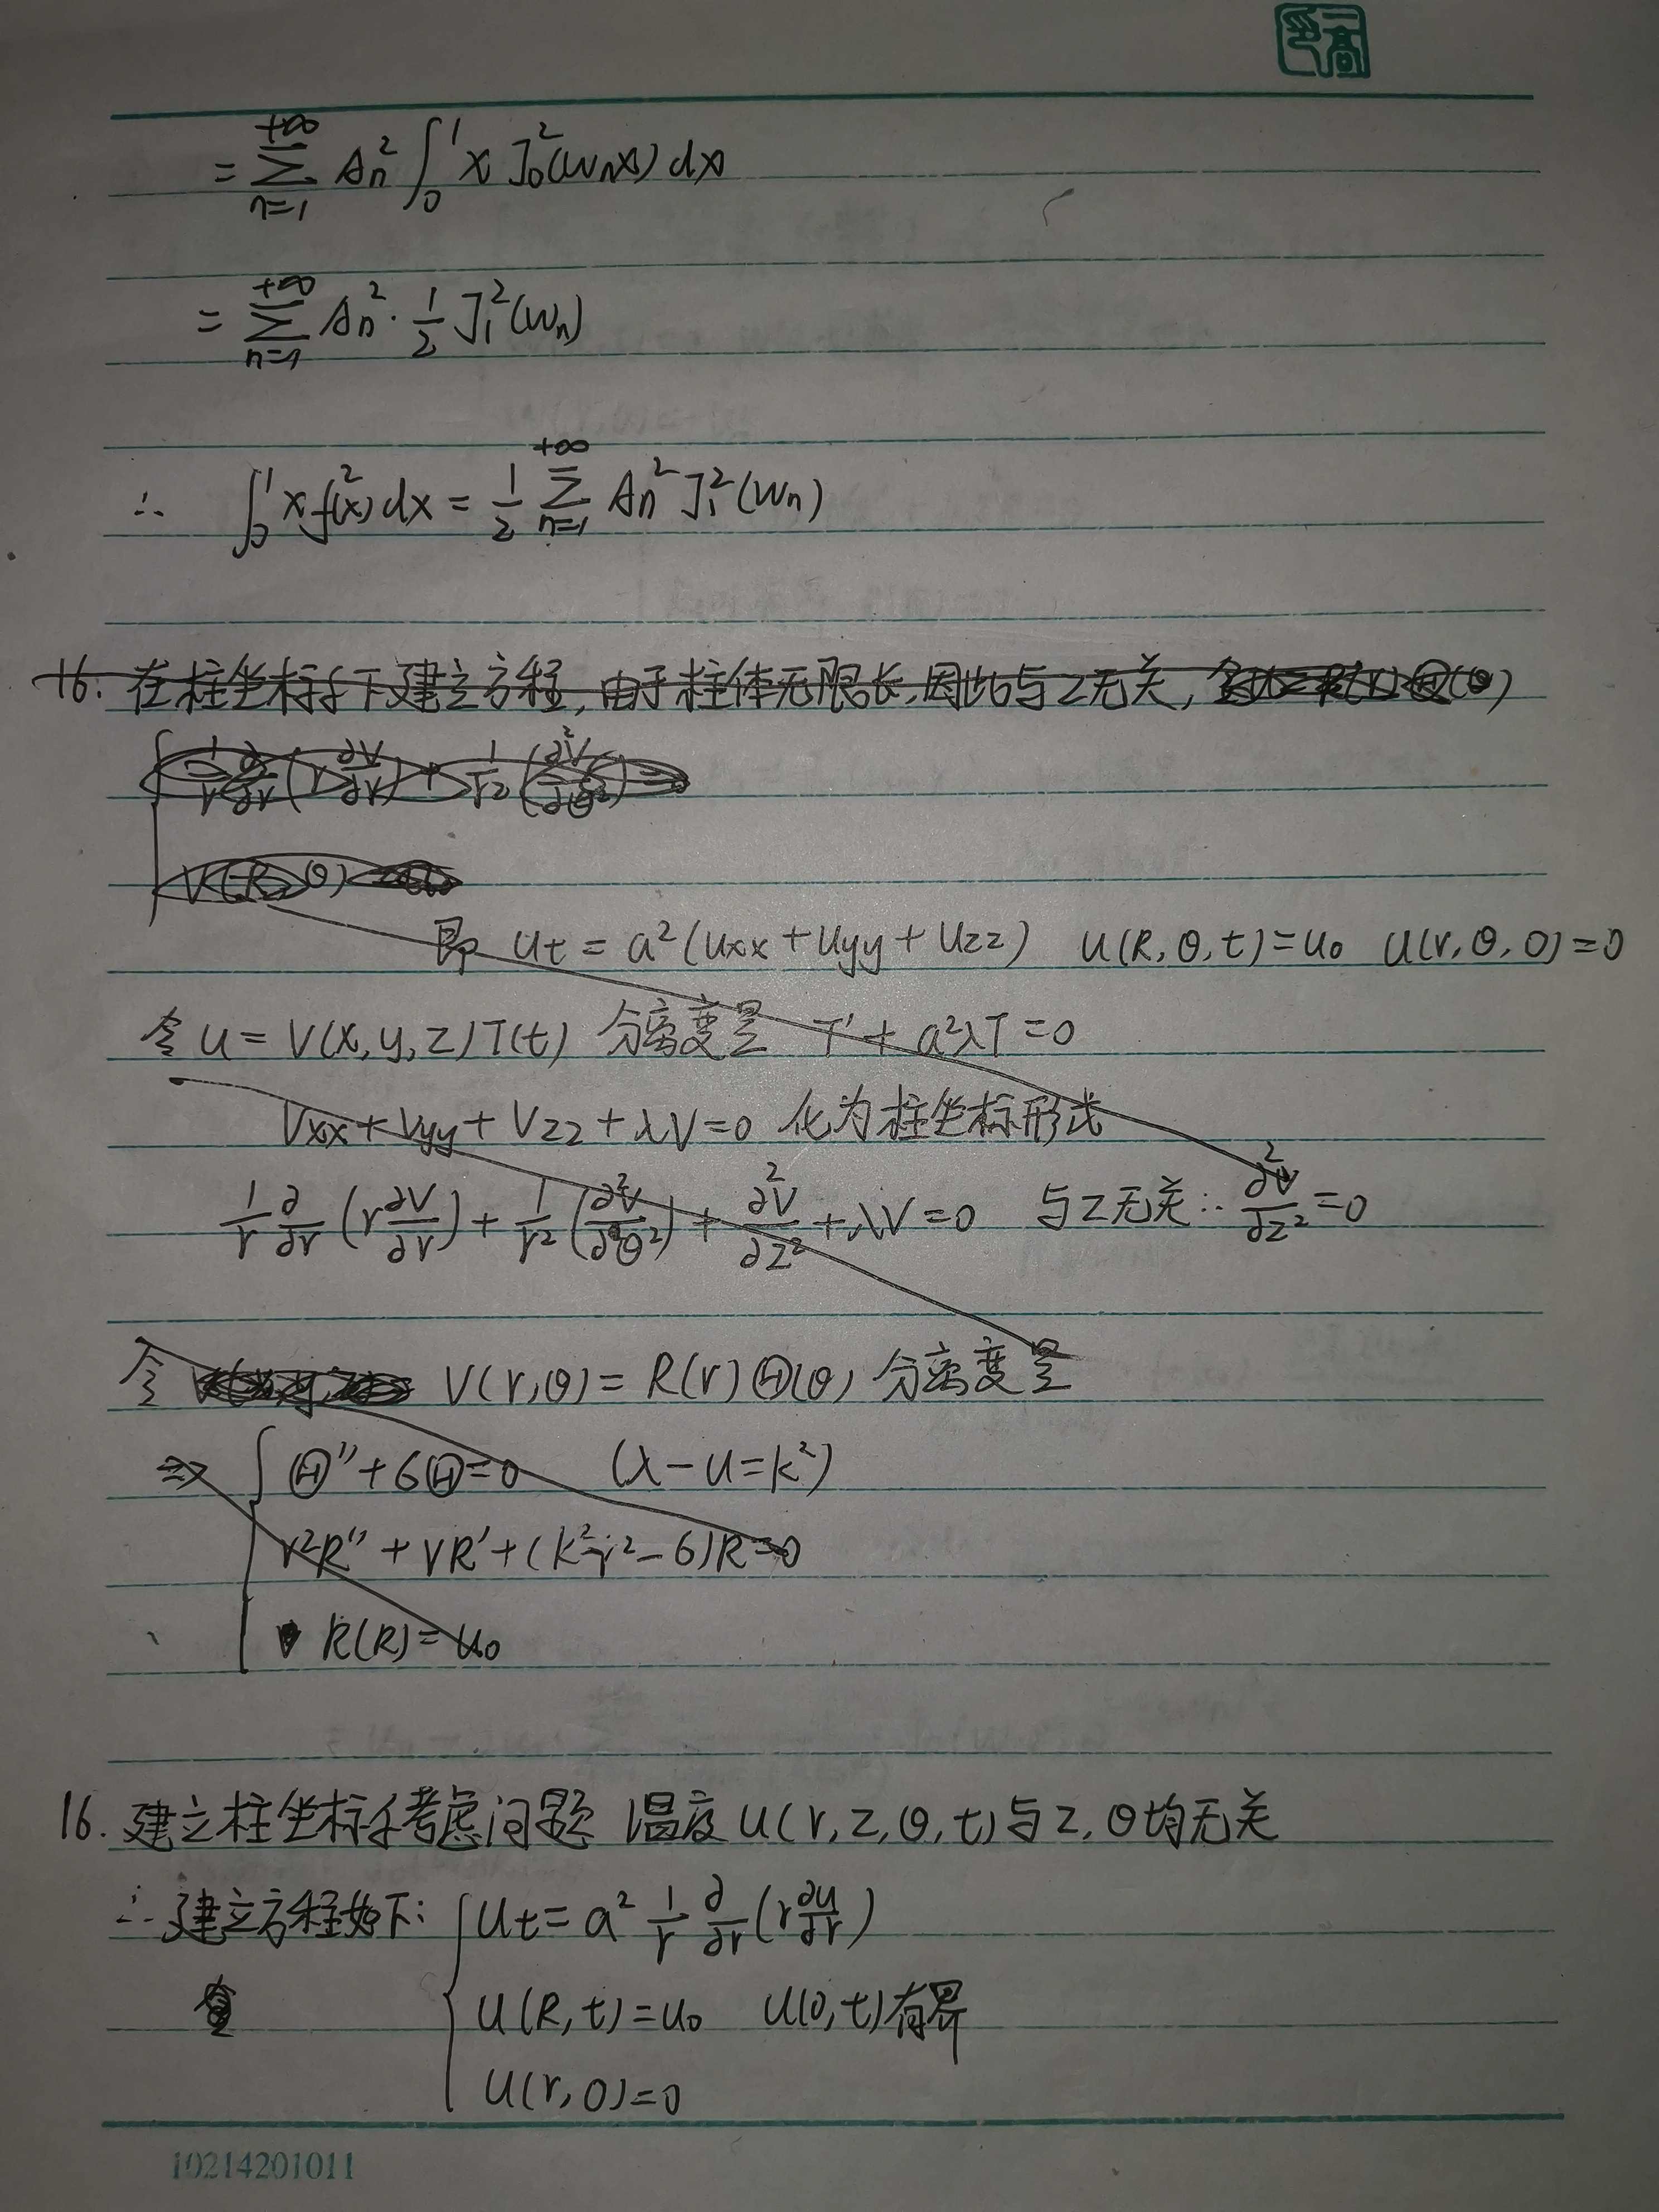 = \sum_{n=1}^{+\infty} A_n^2 \int_0^1 x J_0^2(w_n x) dx
= \sum_{n=1}^{+\infty} A_n^2 \cdot \frac{1}{2} J_1^2(w_n)
∴ \int_0^1 x f^2(x) dx = \frac{1}{2} \sum_{n=1}^{+\infty} A_n^2 J_1^2(w_n)
16. 在柱坐标系下建立方程, 由于柱体无限长, 因此与z无关,
\frac{1}{r} \frac{\partial}{\partial r} (r \frac{\partial V}{\partial r}) + \frac{1}{r^2} (\frac{\partial^2 V}{\partial θ^2}) =
V(R, θ)
即 u_t = a^2 (u_{xx} + u_{yy} + u_{zz}) u(R, θ, t) = u_0 u(r, θ, 0) = 0
令 u = V(x, y, z) T(t) 分离变量 T' + a^2 λT = 0
V_{xx} + V_{yy} + V_{zz} + λV = 0 化为柱坐标形式
\frac{1}{r} \frac{\partial}{\partial r} (r \frac{\partial V}{\partial r}) + \frac{1}{r^2} (\frac{\partial^2 V}{\partial θ^2}) + \frac{\partial^2 V}{\partial z^2} + λV = 0 与z无关 ∴ \frac{\partial^2 V}{\partial z^2} = 0
令 V(r, θ) = R(r) Θ(θ) 分离变量
⇒ { Θ'' + 6Θ = 0 (λ - u = k^2)
r^2 R'' + rR' + (k^2 r^2 - 6) R = 0
R(R) = u_0
16. 建立柱坐标系考虑问题 温度 u(r, z, θ, t) 与 z, θ 均无关
∴ 建立方程如下: { u_t = a^2 \frac{1}{r} \frac{\partial}{\partial r} (r \frac{\partial u}{\partial r})
u(R, t) = u_0 u(0, t) 有界
u(r, 0) = 0
10214201011